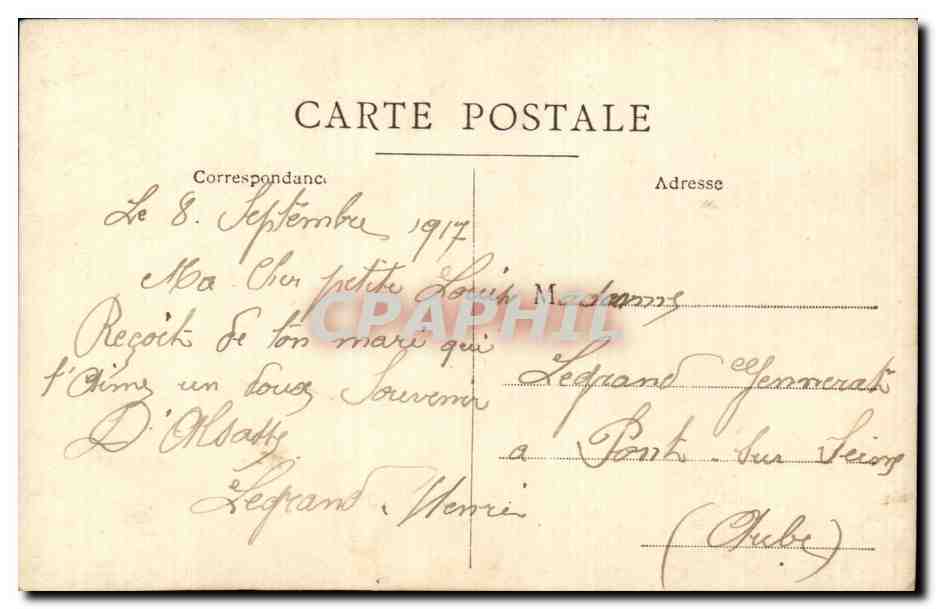 CARTE POSTALE
Correspondance
Le 8. Septembre 1917
Ma Cher petite
Reçoit de ton mari qui
t'Aime un doux Souvenir
D'Alsasse
Legrand Henri
Adresse
Madamme
Legrand
a Pont sur Seine
(Aube)
CPAPHIL